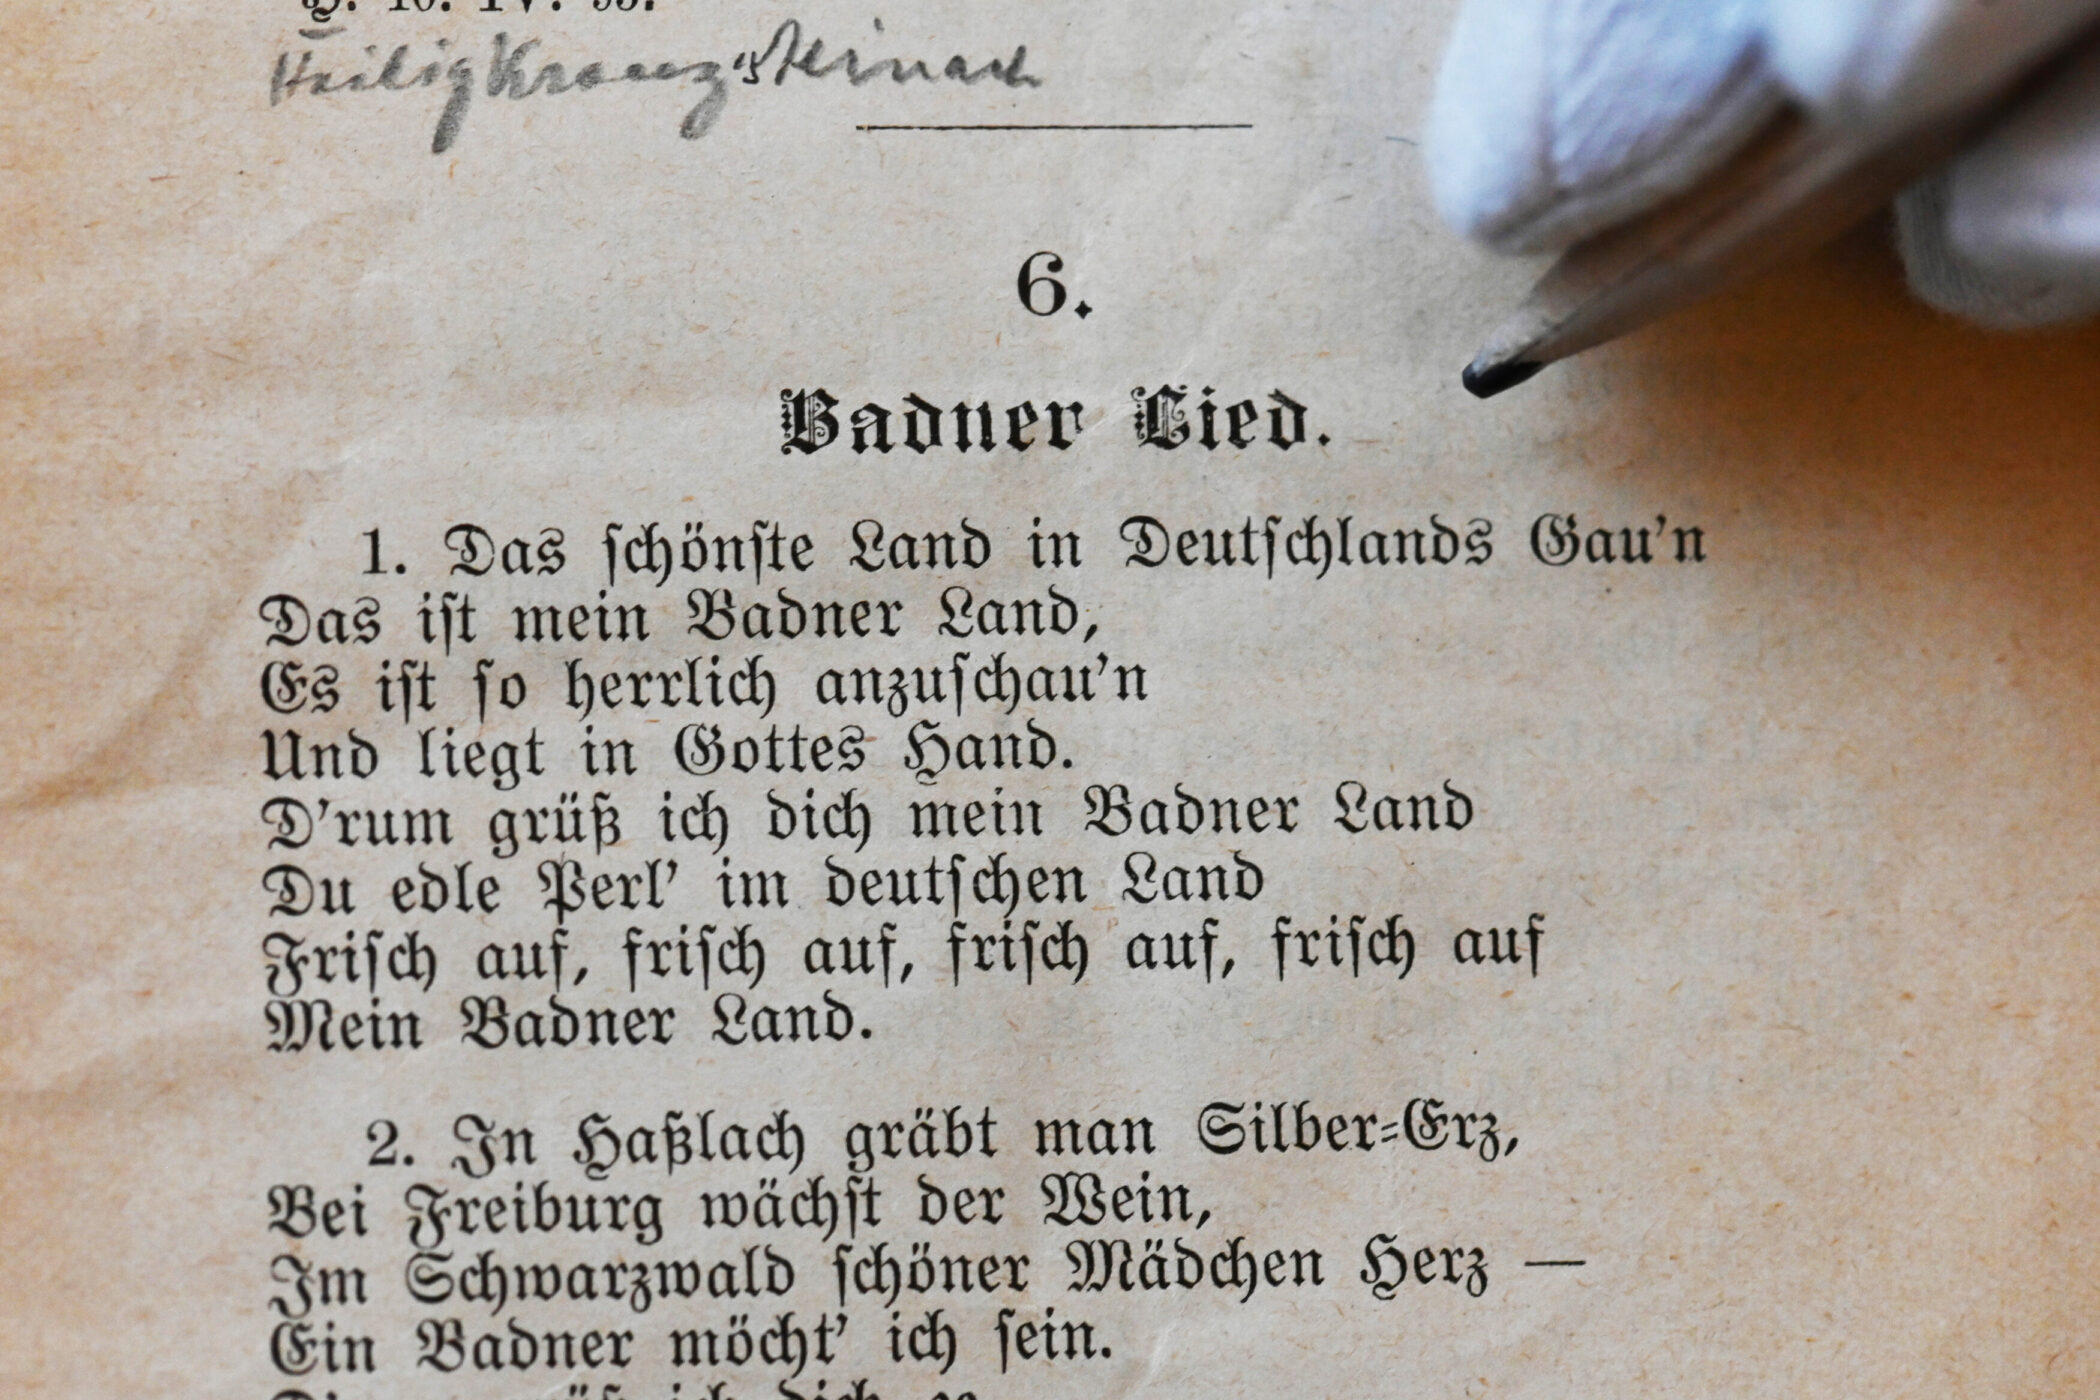 Heiligkreuzsteinach
6.
Badner Lied.
1. Das ſchönſte Land in Deutſchlands Gau'n
Das iſt mein Badner Land,
Es iſt ſo herrlich anzuſchau'n
Und liegt in Gottes Hand.
D'rum grüß ich dich mein Badner Land
Du edle Perl' im deutſchen Land
Friſch auf, friſch auf, friſch auf, friſch auf
Mein Badner Land.
2. In Haßlach gräbt man Silber⸗Erz,
Bei Freiburg wächſt der Wein,
Im Schwarzwald ſchöner Mädchen Herz —
Ein Badner möcht' ich ſein.